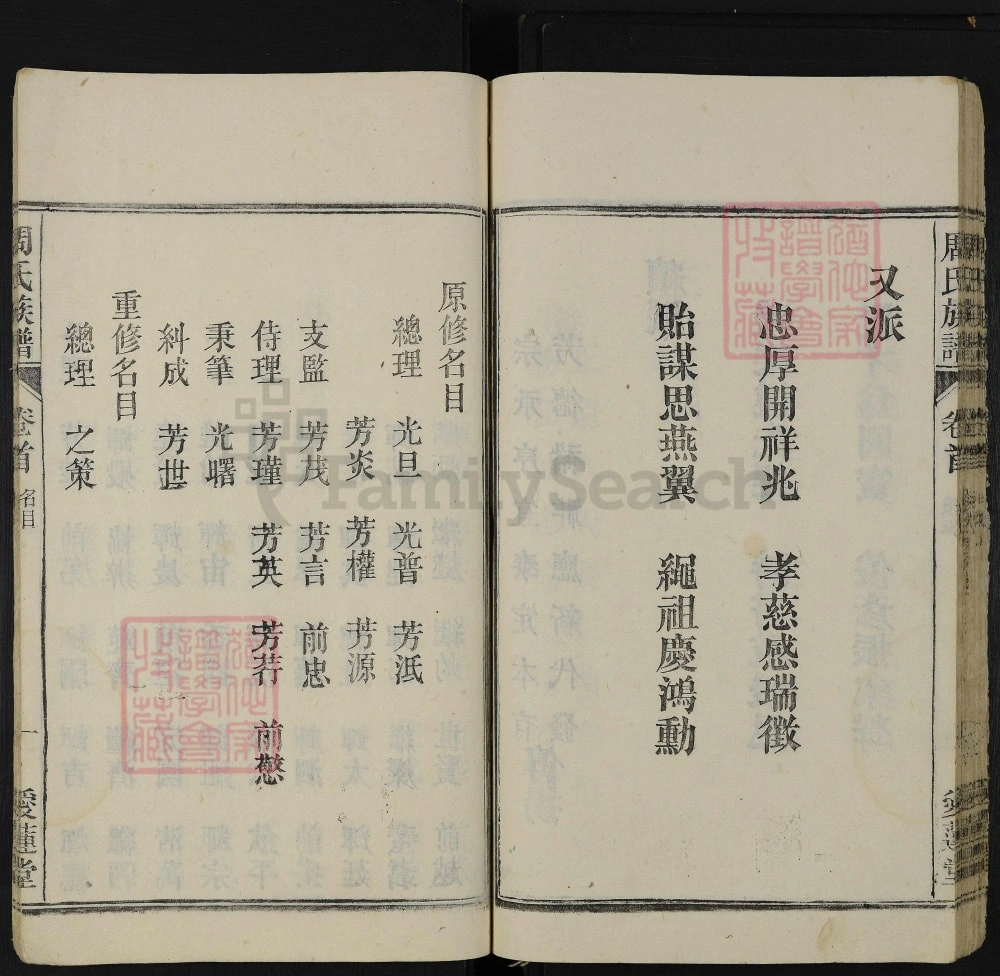 周氏族譜 卷首
愛蓮堂
又派
忠厚開祥兆 孝慈感瑞徵
貽謀思燕翼 繩祖慶鴻勳
原修名目
總理 光旦 光普 芳泜
芳炎 芳權 芳源
支監 芳茂 芳言 前忠
侍理 芳瑾 芳英 芳荇 前慦
秉筆 光曙
糾成 芳世
重修名目
總理 之策
周氏族譜 卷首 名目 一 愛蓮堂
FamilySearch